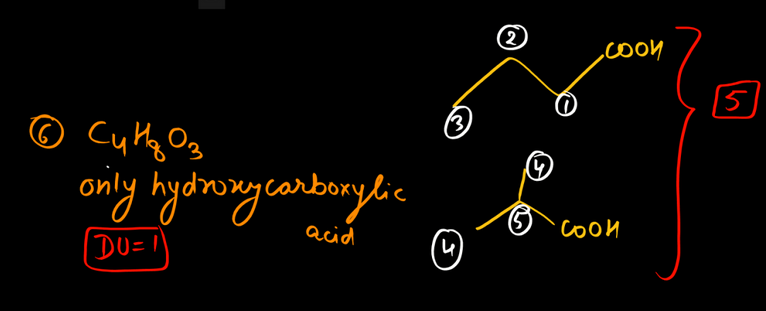 ⑥ C₄H₈O₃
only hydroxycarboxylic
acid
DU=1
② COOH
③ ①
④
④ ⑤ COOH
5